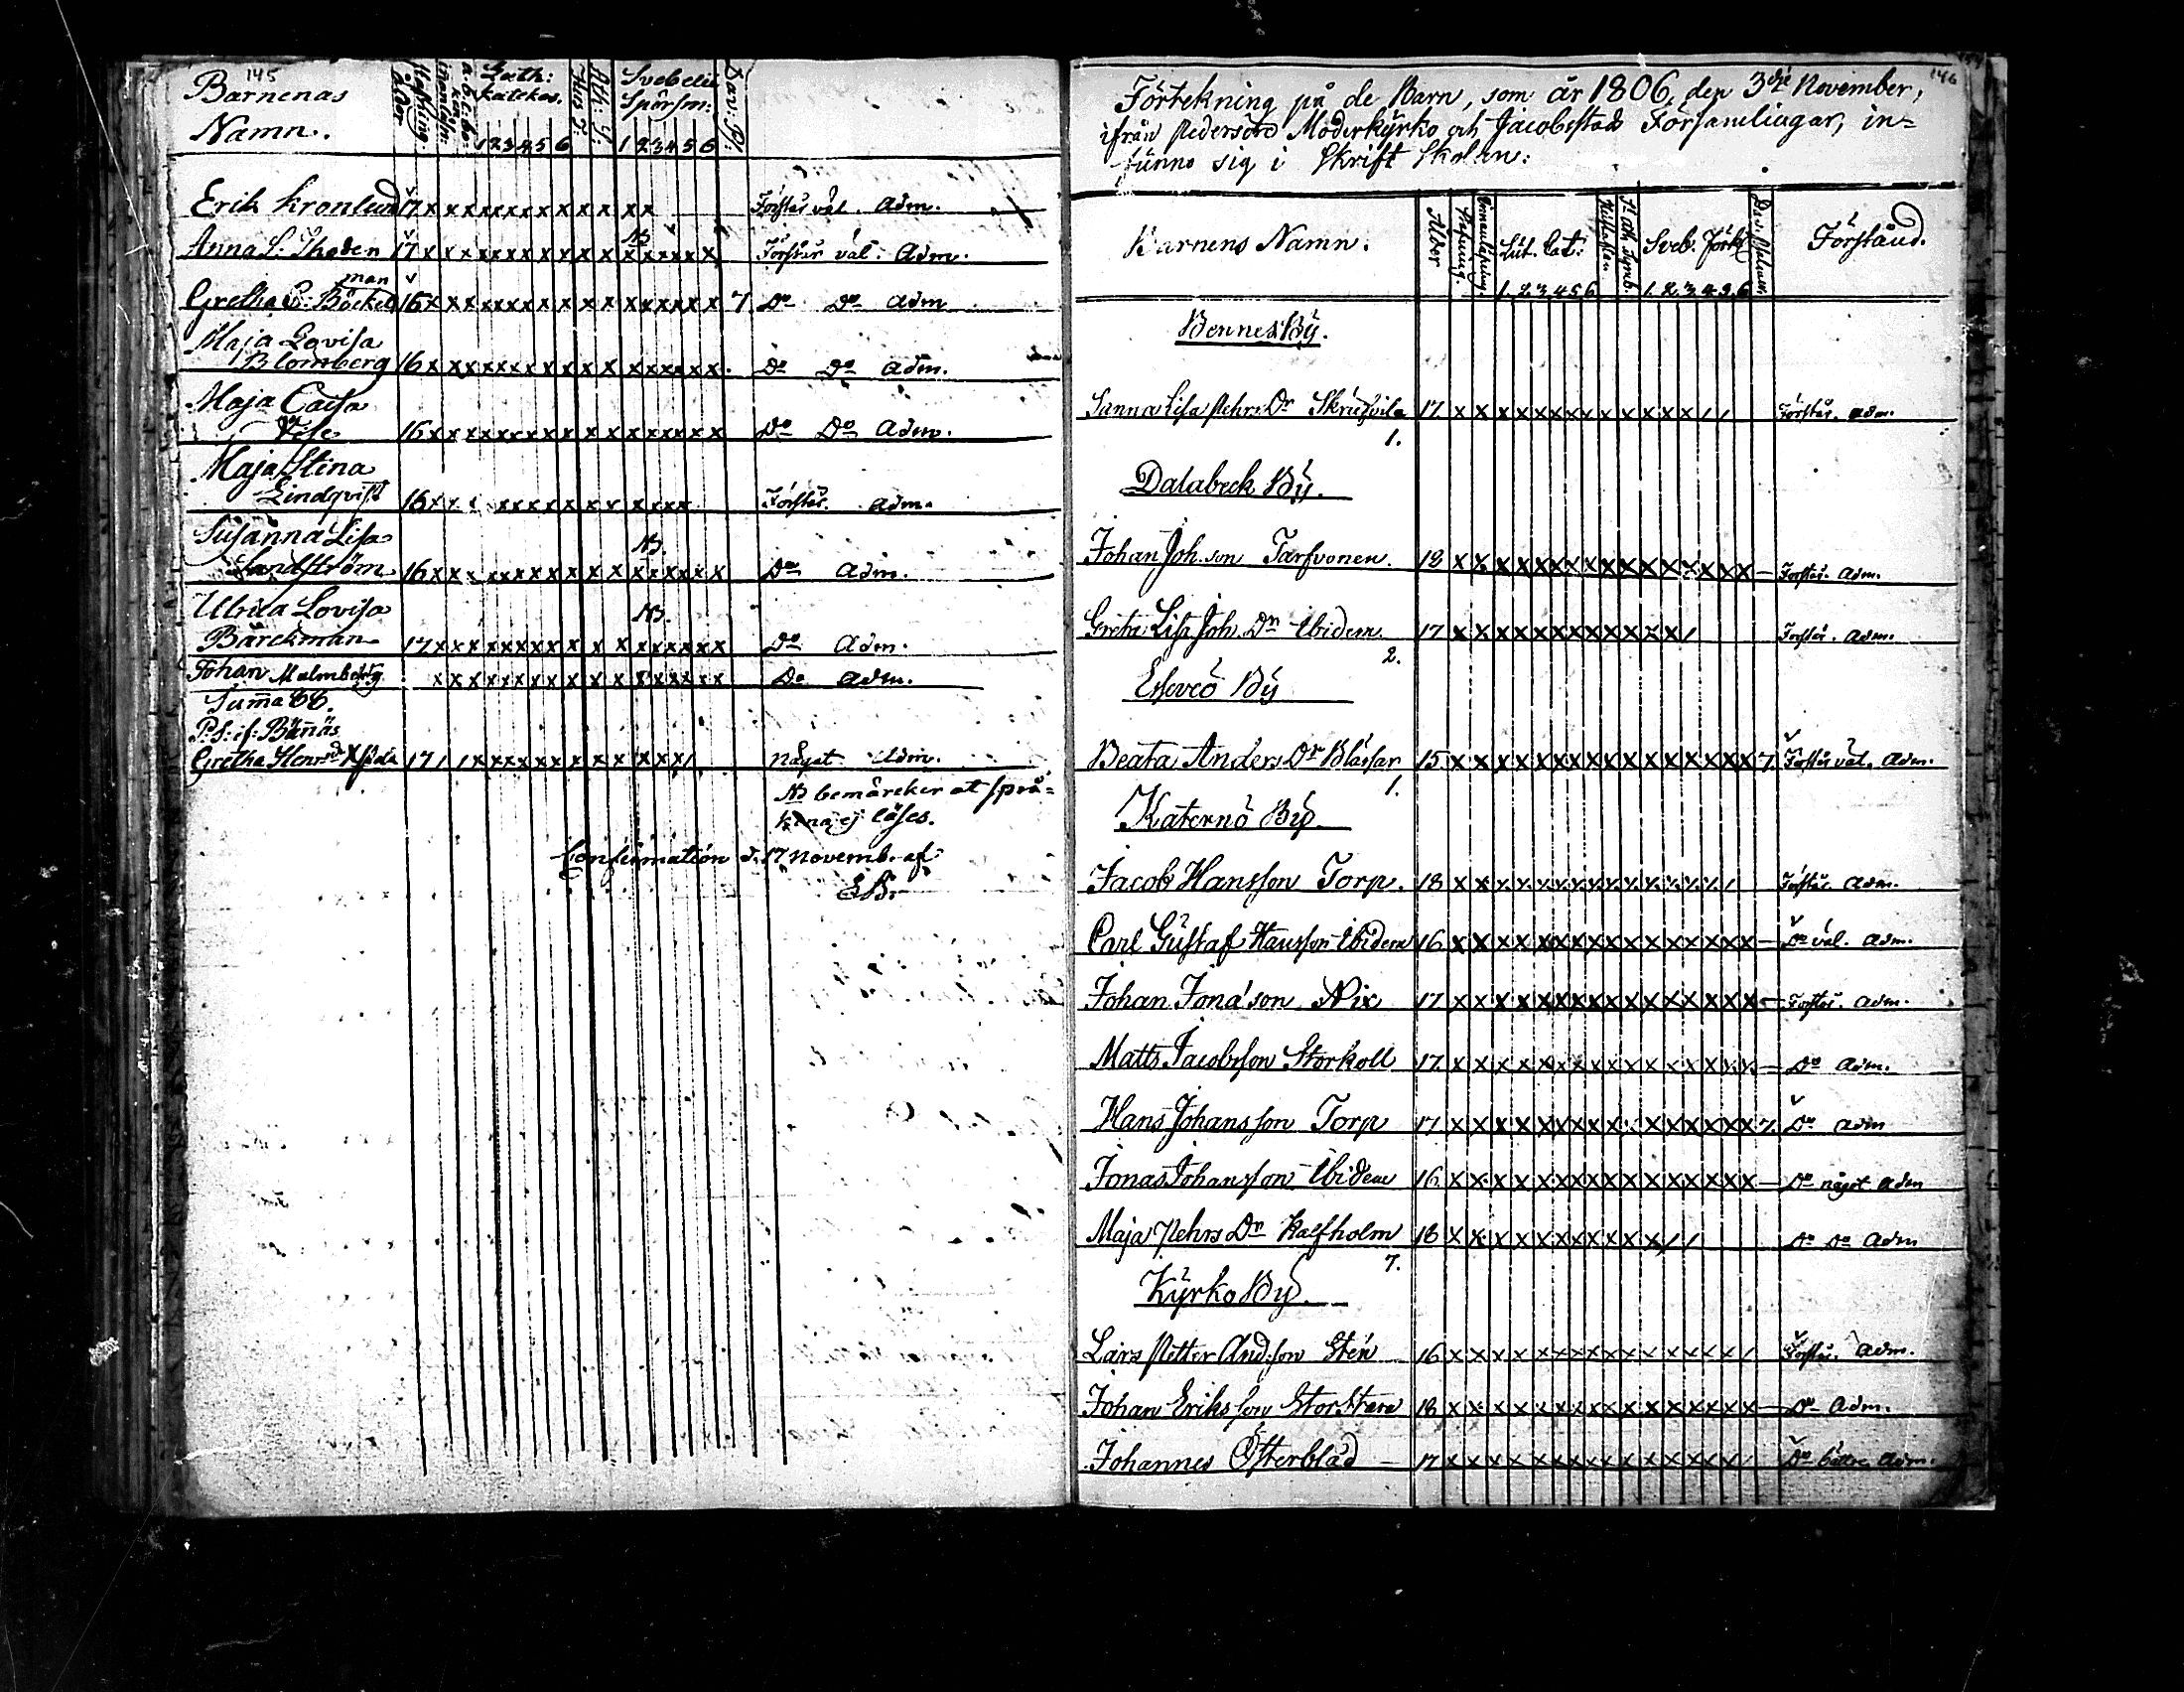 145
Barnenas
Namn.
ålder
Stafning
innanläsn:
a. b. c. bo
Luth:
katekes.
1 2 3 4 5 6
Hus T:
Ath: S:
Svebelii
Spörsm:
1 2 3 4 5 6
Dav: Ps:
Erik Kronlund 17 x x x x x x x x x x x x x Förstår väl. Adm.
Anna S. Thoden 17 x x x x x x x x x x x x x x x x x NB Förstår väl. Adm.
man
Gretha C: Böckel 16 x x x x x x x x x x x x x x x x x 7 Do Do Adm
Maja Lovisa
Blomberg 16 x x x x x x x x x x x x x x x x x Do Do Adm.
Maja Caisa
16 x x x x x x x x x x x x x x x x x Do Do Adm.
Maja Stina
Lindqvist 16 x x x x x x x x x x x x x x x Förstår. Adm.
Susanna Lisa NB.
Sandström 16 x x x x x x x x x x x x x x x x x Do Adm.
Ulrica Lovisa NB.
Bärckman 17 x x x x x x x x x x x x x x x x x Do Adm.
Johan Malmberg x x x x x x x x x x x x x x x x x Do Adm.
Summa 66.
P.S: if: Bännäs
Gretha Henr:dr 17 / / x x x x x x x x x x x x x / Något Adm.
NB bemärcker at språ=
kena ej läses.
Confirmation d. 17 Novemb. af
EB.
146
Förtekning på de Barn, som år 1806, den 3die November,
ifrån Pedersöre Moderkyrko och Jacobstads Församlingar, in=
funno sig i Skrift Skolan:
Barnens Namn.
Ålder
Stafning.
Innanläsning.
Lut. Cat:
1. 2. 3. 4 5 6
Hustaflan
St. Ath. Symb.
Sveb. Förkl.
1. 2. 3. 4. 5. 6
Dav. Psalmer.
Förstånd.
Bennes By.
Sanna Lisa Pehrs Dr Skrufvila 17 x x x x x x x x x x x x x / / Förstår. adm.
1.
Dalabeck By.
Johan Joh.son Tarfvonen. 18 x x x x x x x x x x x x x x x x — Förstår. Adm.
Greta Lisa Joh. Dr Ibidem 17 x x x x x x x x x x x x / Förstår. Adm.
2.
Esseviö By
Beata Anders Dr Blässar 15 x x x x x x x x x x x x x x x x 7. Förstår väl. Adm.
1.
Katernö By.
Jacob Hansson Torp. 18 x x x x x x x x x x x x x x x / Förstår. Adm.
Carl Gustaf Hansson Ibidem 16 x x x x x x x x x x x x x x x x — Do väl. Adm.
Johan Jonason Nix 17 x x x x x x x x x x x x x x x x — Förstår. Adm.
Matts Jacobsson Storkoll 17. x x x x x x x x x x x x x x x x — Do Adm.
Hans Johansson Torp 17 x x x x x x x x x x x x x x x x 7. Do Adm
Jonas Johansson Ibidem 16 x x x x x x x x x x x x x x x x — Do något Adm
Maja Pehrs Dr Kalfholm 18 x x x x x x x x x x x / / Do Do Adm
7.
Kyrko By.
Lars Petter And:son Stén 16 x x x x x x x x x x x x x x x / Förstår. Adm.
Johan Eriksson Stor Stara 18 x x x x x x x x x x x x x x x x — Do Adm.
Johannes Österblad — 17 x x x x x x x x x x x x x x x / Do bättre Adm.